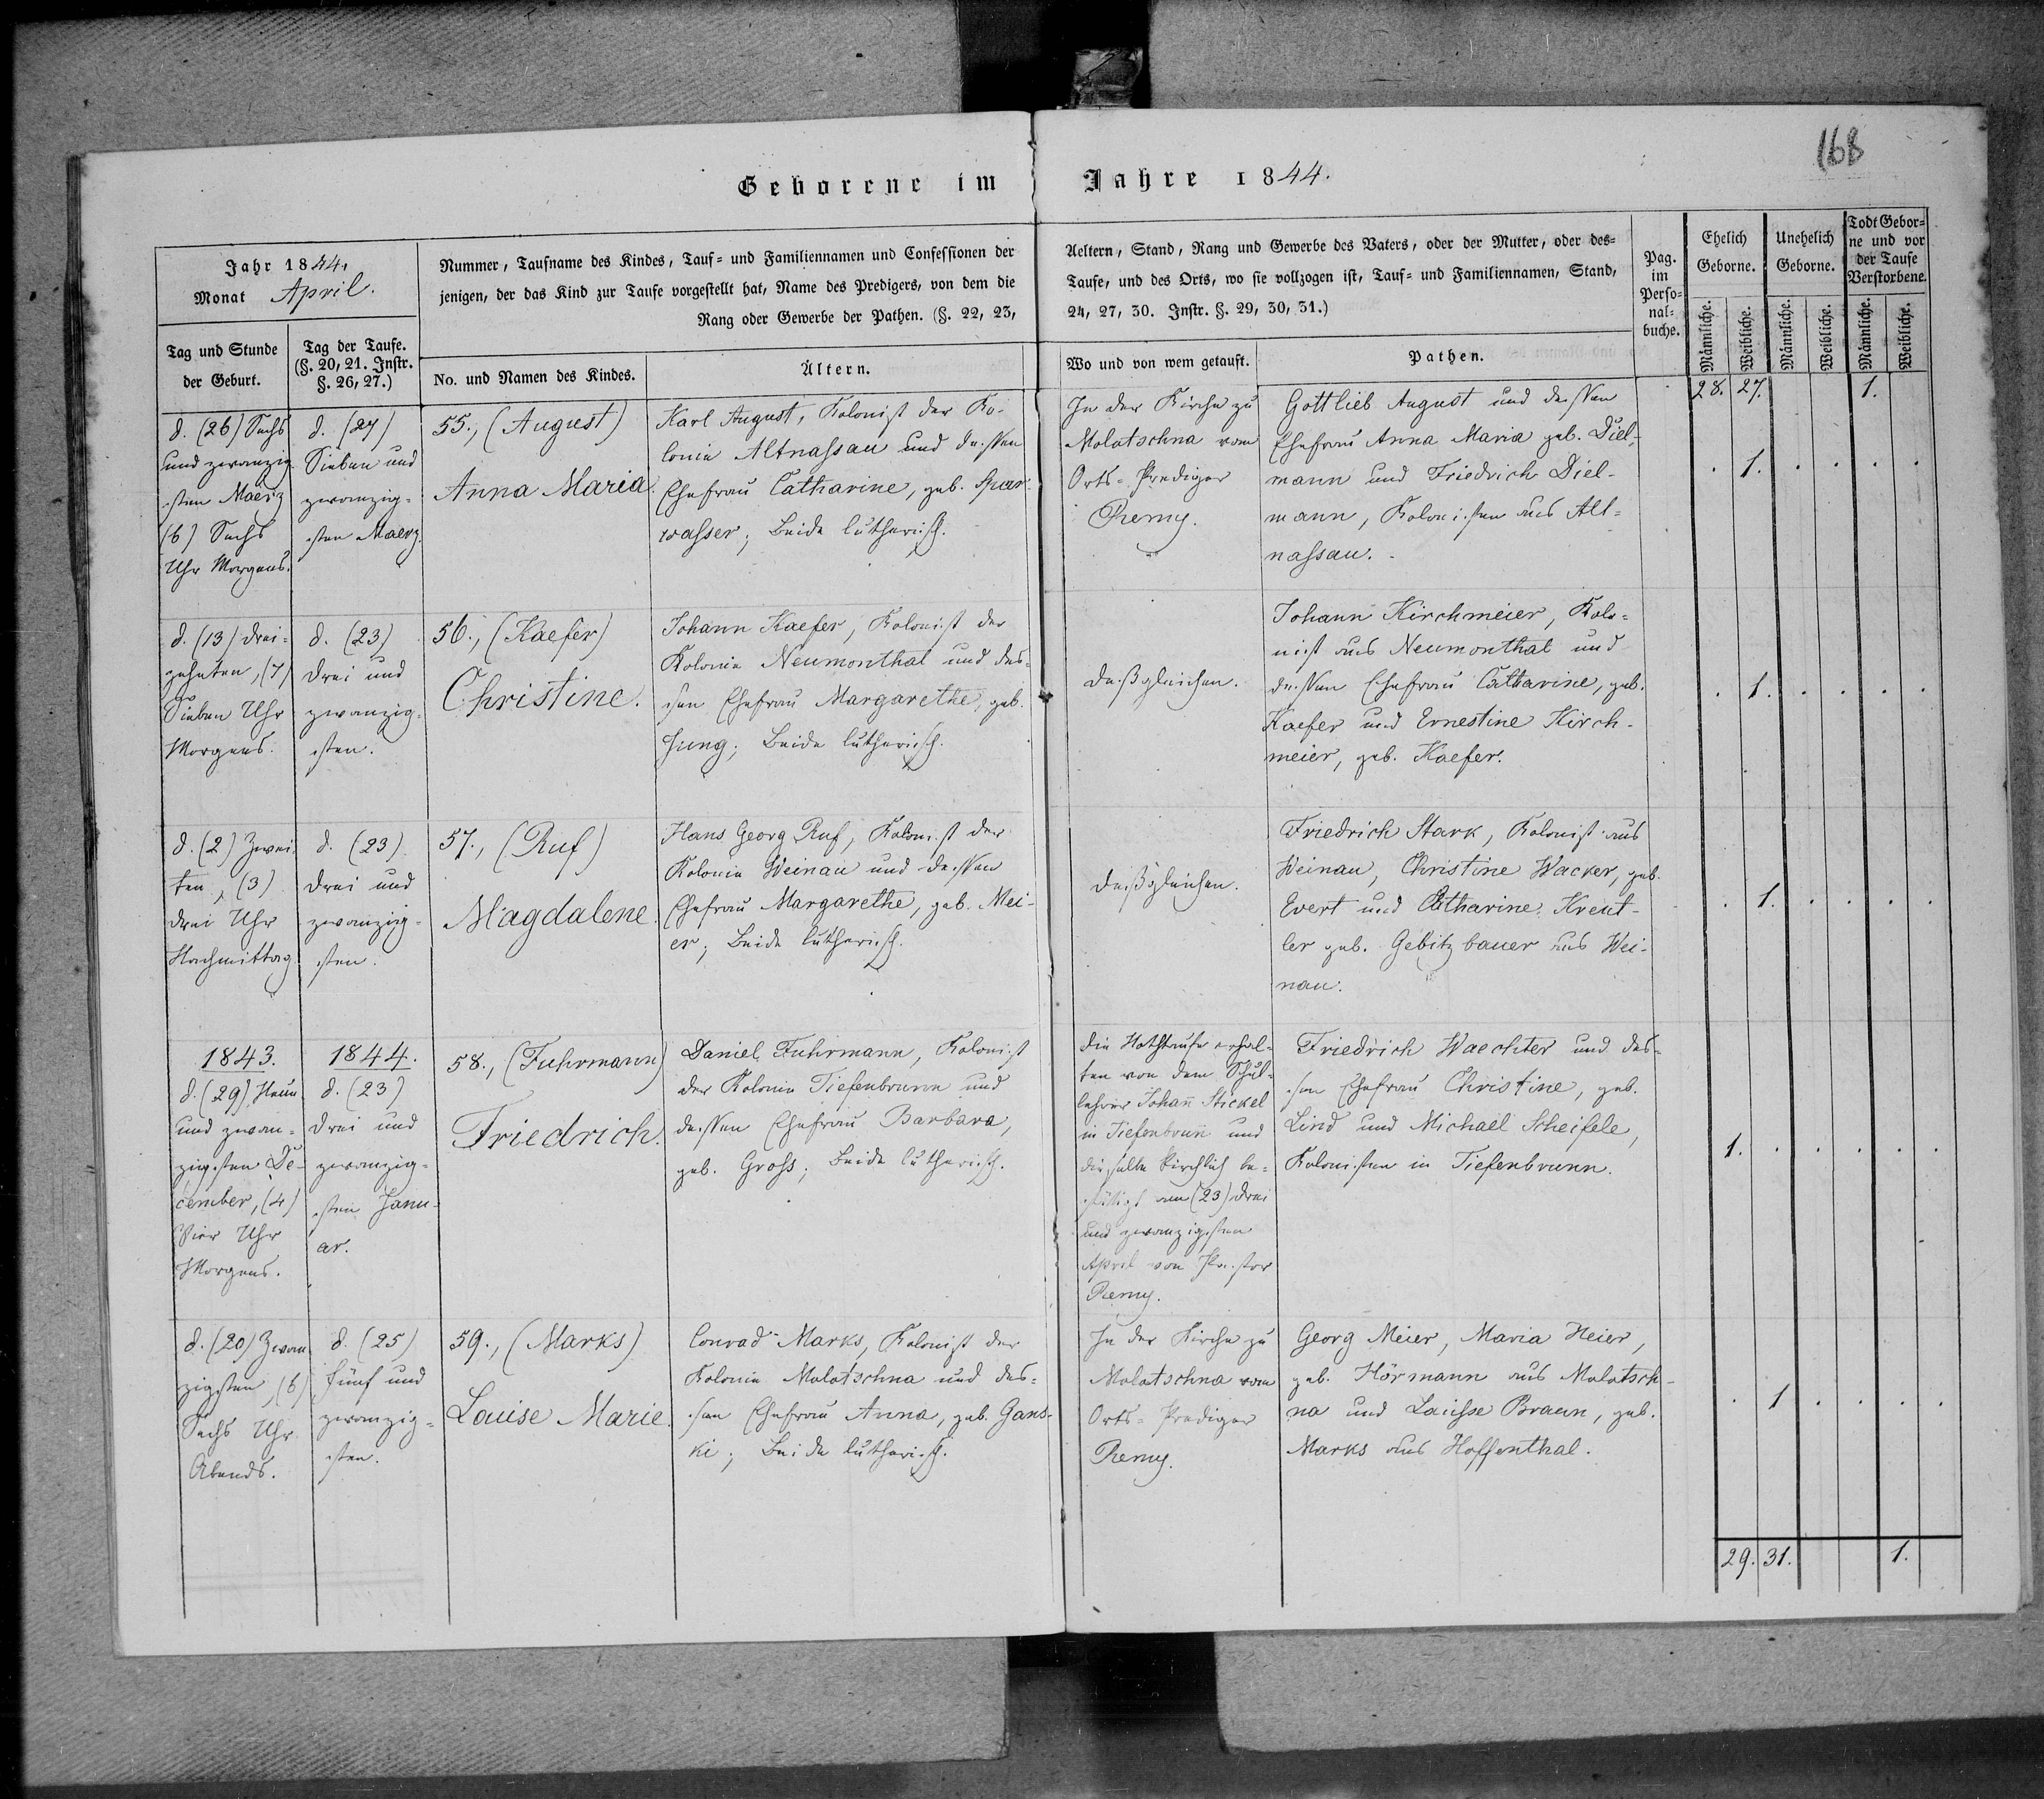 168
Geborene im Jahre 1844.
Jahr 1844.
Monat April.
Tag und Stunde
der Geburt.
Tag der Taufe.
(§. 20, 21. Instr.
§. 26, 27.)
Nummer, Taufname des Kindes, Tauf- und Familiennamen und Confessionen der
jenigen, der das Kind zur Taufe vorgestellt hat, Name des Predigers, von dem die
Rang oder Gewerbe der Pathen. (§. 22, 23,
No. und Namen des Kindes.
Ältern.
Aeltern, Stand, Rang und Gewerbe des Vaters, oder der Mutter, oder des-
Taufe, und des Orts, wo sie vollzogen ist, Tauf- und Familiennamen, Stand,
24, 27, 30. Instr. §. 29, 30, 31.)
Wo und von wem getauft.
Pathen.
Pag.
im
Perso-
nal-
buche.
Ehelich
Geborne.
Unehelich
Geborne.
Todt Gebor-
ne und vor
der Taufe
Verstorbene.
Männliche.
Weibliche.
Männliche.
Weibliche.
Männliche.
Weibliche.
28. 27. 1.
d. (26) Sechs
und zwanzig
sten Maerz
(6) Sechs
Uhr Morgens.
d. (27)
Sieben und
zwanzig-
sten Maerz.
55., (August)
Anna Maria.
Karl August, Kolonist der Ko-
lonie Altnassau und dessen
Ehefrau Catharine, geb. Spar-
wasser; Beide lutherisch.
In der Kirche zu
Molotschna vom
Orts-Prediger
Remy.
Gottlieb August und dessen
Ehefrau Anna Maria geb. Diel-
mann und Friedrich Diel-
mann, Kolonisten aus Alt-
nassau.
. 1. . . . .
d. (13) Drei-
zehnten, (7)
Sieben Uhr
Morgens.
d. (23)
Drei und
zwanzig-
sten.
56., (Kaefer)
Christine.
Johann Kaefer, Kolonist der
Kolonie Neumonthal und des-
sen Ehefrau Margarethe, geb.
Jung; Beide lutherisch.
Deßgleichen.
Johann Kirchmeier, Kolo-
nist aus Neumonthal und
dessen Ehefrau Catharine, geb.
Kaefer und Ernestine Kirch-
meier, geb. Kaefer.
. 1. . . . .
d. (2) Zwei-
ten, (3)
Drei Uhr
Nachmittag
d. (23)
Drei und
zwanzig-
sten.
57., (Ruf)
Magdalene.
Hans Georg Ruf, Kolonist der
Kolonie Weinau und dessen
Ehefrau Margarethe, geb. Mei-
er; Beide lutherisch.
Deßgleichen.
Friedrich Stark, Kolonist aus
Weinau, Christine Wacker, geb.
Evert und Catharine Kreut-
ler geb. Gebitzbauer aus Wei-
nau.
. 1. . . . .
1843.
d. (29) Neun
und zwan-
zigsten De-
cember, (4)
Vier Uhr
Morgens.
1844.
d. (23)
Drei und
zwanzig-
sten Janu-
ar.
58., (Fuhrmann)
Friedrich.
Daniel Fuhrmann, Kolonist
der Kolonie Tiefenbrunn und
dessen Ehefrau Barbara,
geb. Gross; Beide lutherisch.
Die Nothtaufe erhal-
ten von dem Schul-
lehrer Johann Stickel
in Tiefenbrunn und
dieselbe kirchlich be-
stätigt am (23) drei
und zwanzigsten
April von Pastor
Remy.
Friedrich Waechter und des-
sen Ehefrau Christine, geb.
Lind und Michael Scheifele,
Kolonisten in Tiefenbrunn.
1. . . . . .
d. (20) Zwan
zigsten, (6)
Sechs Uhr
Abends.
d. (25)
Fünf und
zwanzig-
sten.
59., (Marks)
Louise Marie.
Conrad Marks, Kolonist der
Kolonie Molotschna und des-
sen Ehefrau Anna, geb. Gans-
ki; Beide lutherisch.
In der Kirche zu
Molotschna vom
Orts-Prediger
Remy.
Georg Meier, Maria Heier,
geb. Hörmann aus Molotsch-
na und Louise Braun, geb.
Marks aus Hoffenthal.
. 1 . . . .
29. 31. 1.